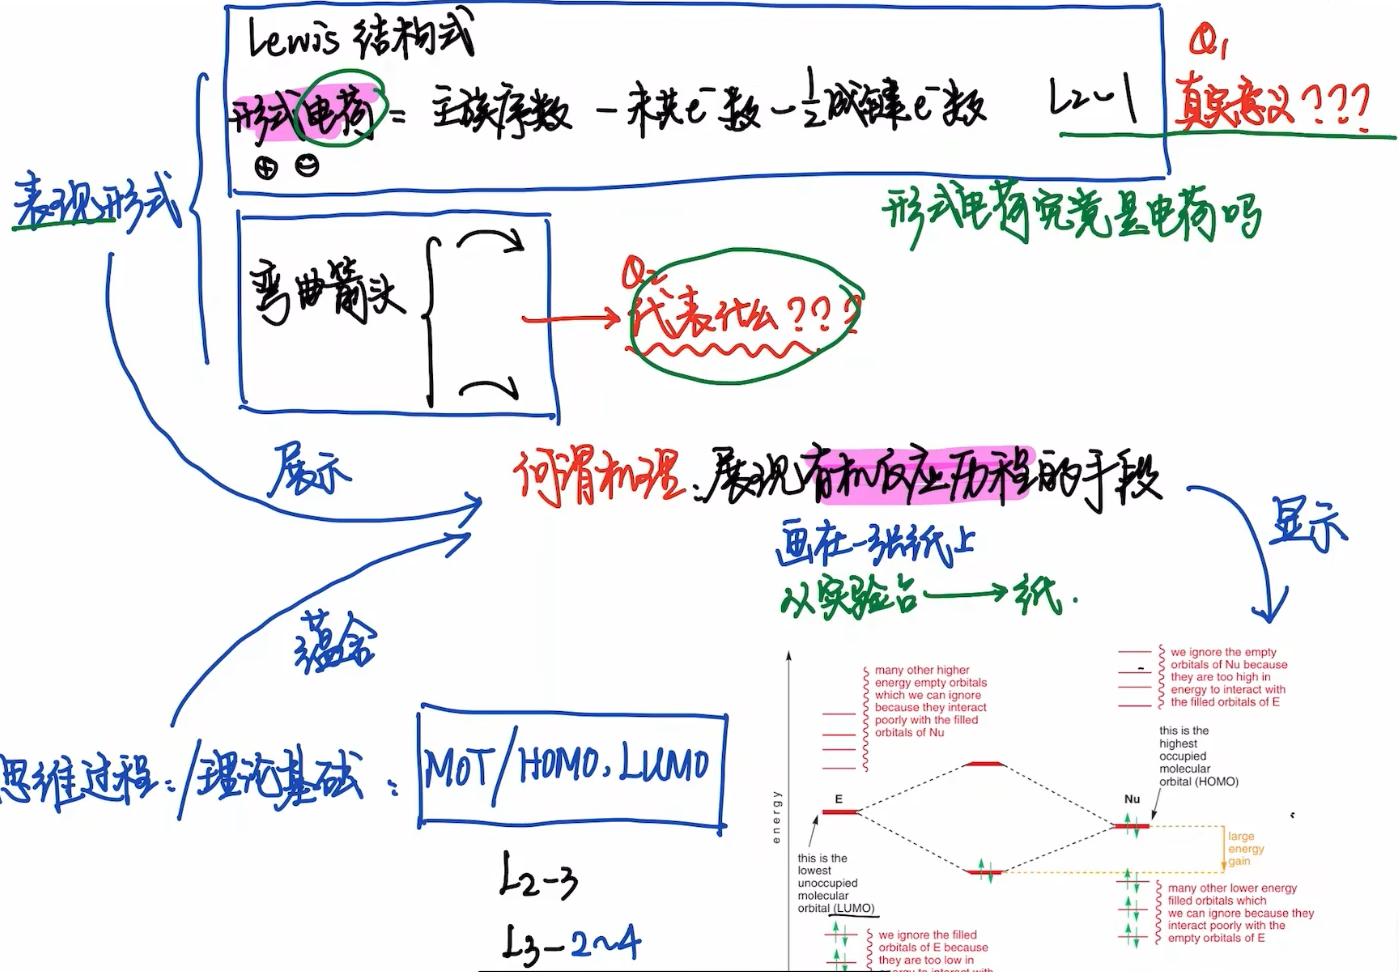 Lewis 结构式
形式电荷 = 主族序数 - 未共e⁻数 - 1/2成键e⁻数
L2~1
⊕ ⊖
Q1
真实意义???
形式电荷究竟是电荷吗
表现形式
弯曲箭头
Q2
代表什么???
展示
何谓机理:展现有机反应历程的手段
画在一张纸上
从实验台→纸.
显示
蕴含
思维过程:/理论基础:
MOT/HOMO, LUMO
L2-3
L3-2~4
many other higher
energy empty orbitals
which we can ignore
because they interact
poorly with the filled
orbitals of Nu
we ignore the empty
orbitals of Nu because
they are too high in
energy to interact with
the filled orbitals of E
this is the
highest
occupied
molecular
orbital (HOMO)
energy
E
Nu
large
energy
gain
this is the
lowest
unoccupied
molecular
orbital (LUMO)
many other lower energy
filled orbitals which
we can ignore because they
interact poorly with the
empty orbitals of E
we ignore the filled
orbitals of E because
they are too low in
energy to interact with